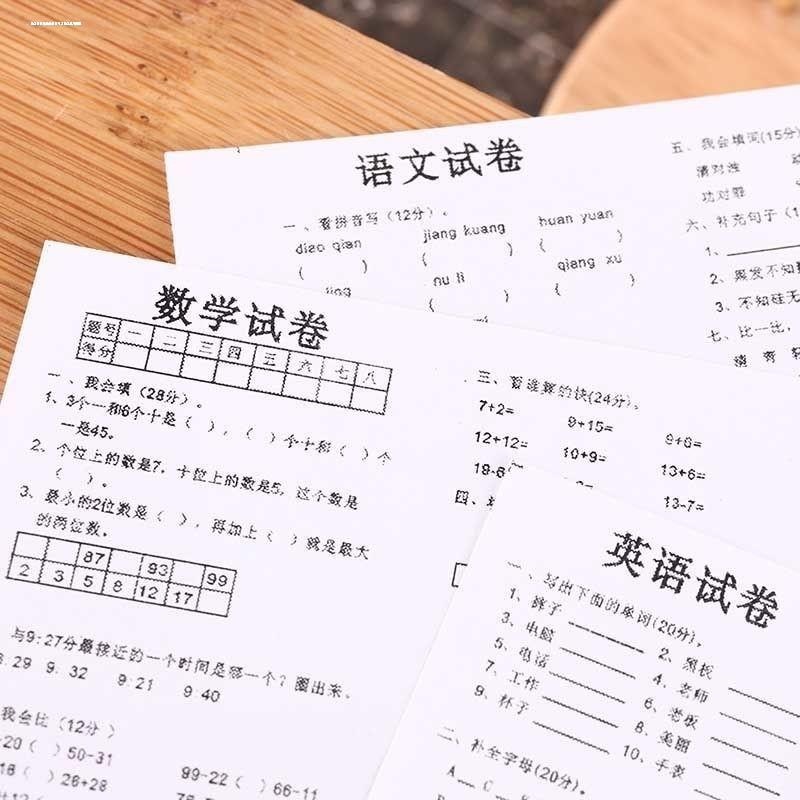 语文试卷
一、看拼音写(12分)。
diao qian jiang kuang huan yuan
( ) ( ) ( )
jing nu li qiang xu
( ) ( )
五、我会填词(15分)
清对浊
功对罪
六、补充句子(1
1、
2、黑发不知
3、不知硅无
七、比一比,
数学试卷
题号 一 二 三 四 五 六 七 八
得分
一、我会填(28分)。
1、3个一和6个十是( ),( )个十和( )个
一是45。
2、个位上的数是7,十位上的数是5,这个数是
( )。
3、最小的2位数是( ),再加上( )就是最大
的两位数。
87 93 99
2 3 5 8 12 17
与9:27分最接近的一个时间是哪一个?圈出来。
8:29 9:32 9:21 9:40
我会比(12分)
20( )50-31 99-22( )66-11
18( )26+28
三、看谁算的快(24分)。
7+2= 9+15= 9+6=
12+12= 10+9= 13+6=
13-7=
四、
英语试卷
一、写出下面的单词(20分)。
1、裤子 2、黑板
3、电脑 4、老师
5、电话 6、老板
7、工作 8、美丽
9、杯子 10、手表
二、补全字母(20分)。
A C